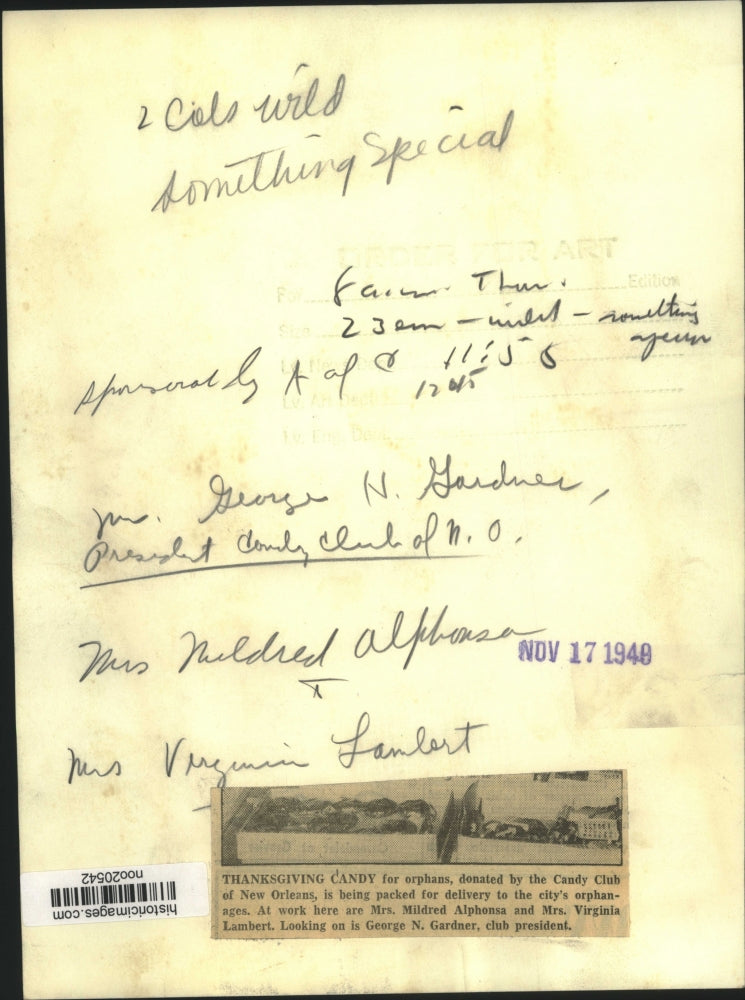 2 Cols wild
something special
ORDER FOR ART
For Thur. Edition
Size 23 em - - something
Sponsored by A of C 11:55
Lv. Art Dept. 1245
Lv. Eng. Dept.
Mr. George N. Gardner,
President Candy Club of N. O.
Mrs Mildred Alphonsa
NOV 17 1949
Mrs Virginia Lambert
THANKSGIVING CANDY for orphans, donated by the Candy Club
of New Orleans, is being packed for delivery to the city's orphan-
ages. At work here are Mrs. Mildred Alphonsa and Mrs. Virginia
Lambert. Looking on is George N. Gardner, club president.
historicimages.com
noo20542